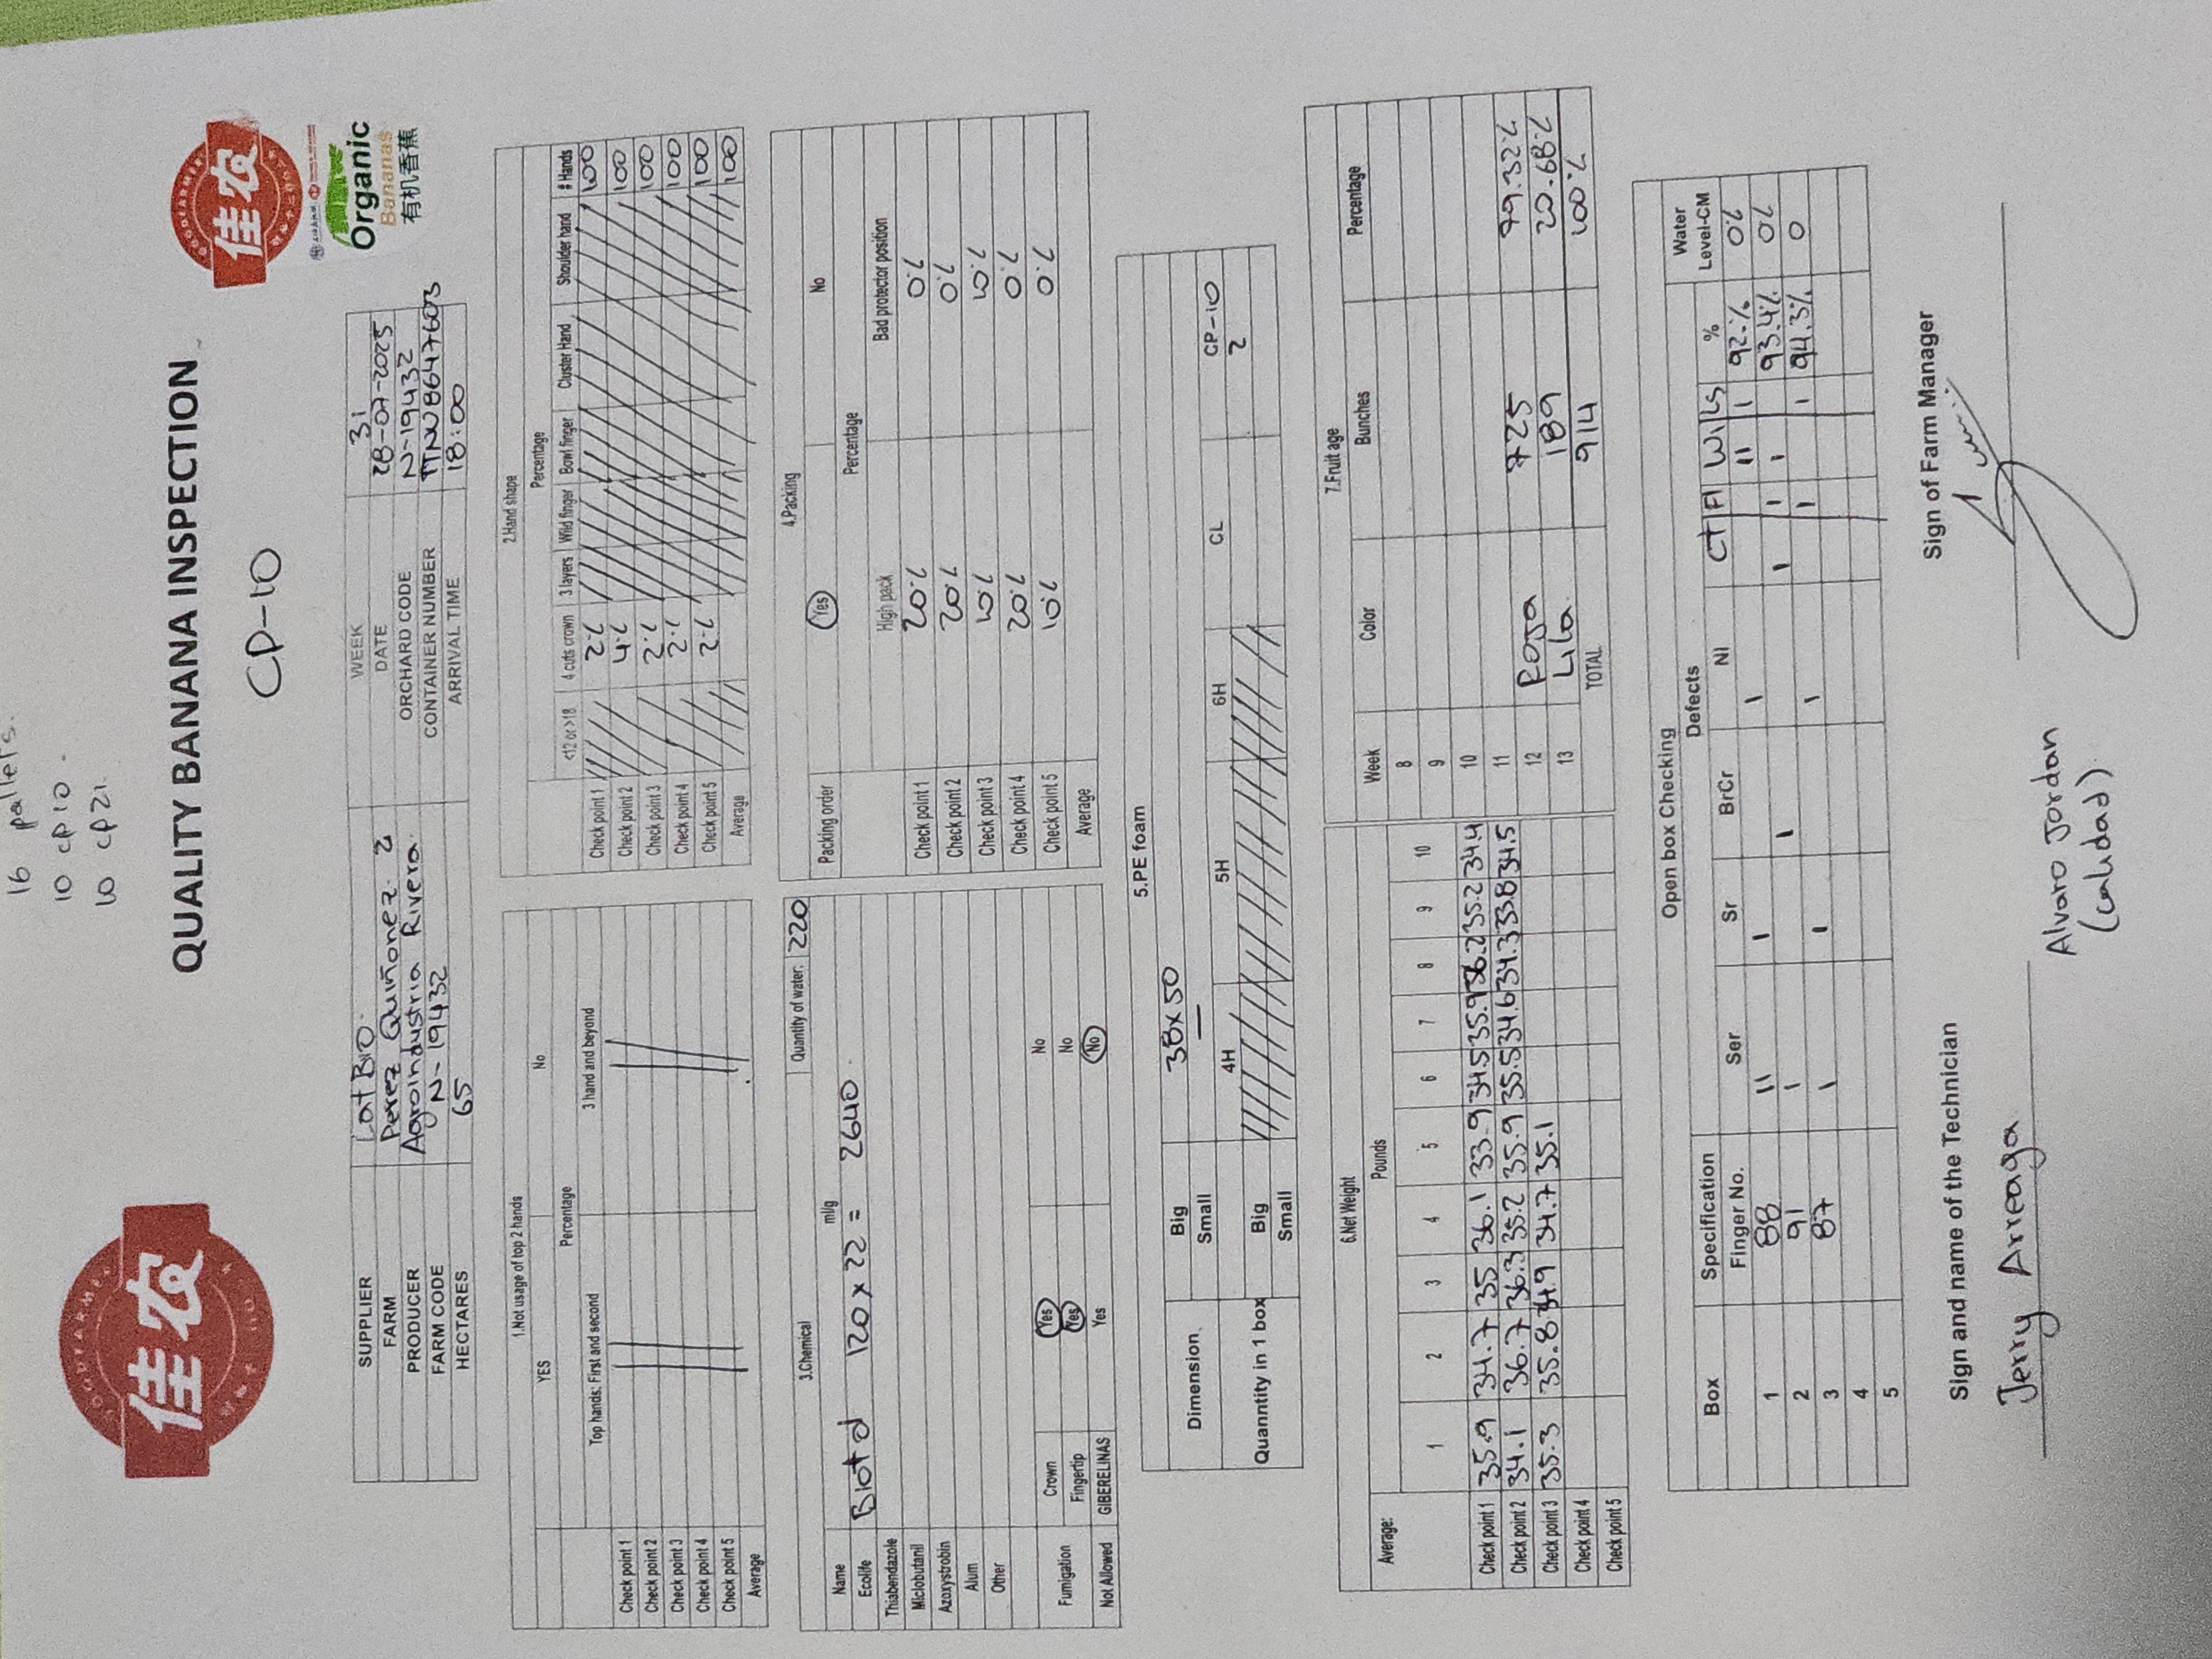 16 pallets.
10 cp10.
10 cp21.
QUALITY BANANA INSPECTION
CP-10
佳农
佳农
GOODFARMER
Organic
Bananas
有机香蕉
SUPPLIER Lat BIO. WEEK 31
FARM Perez Quiñonez 2 DATE 28-07-2025
PRODUCER Agroindustria Rivera. ORCHARD CODE N-19432
FARM CODE N-19432 CONTAINER NUMBER
HECTARES 65 ARRIVAL TIME 18:00
1.Not usage of top 2 hands
YES No
Percentage
Top hands: First and second 3 hand and beyond
Check point 1
Check point 2
Check point 3
Check point 4
Check point 5
Average
2.Hand shape
Percentage
<12 or >18 4 cuts crown 3 layers Wild finger Bowl finger Cluster Hand Shoulder hand # Hands
Check point 1 2% 100
Check point 2 4% 100
Check point 3 2% 100
Check point 4 2% 100
Check point 5 2% 100
Average 100
3.Chemical Quantity of water: 220
Name ml/g
Ecolife Biotd 120 x 22 = 2640.
Thiabendazole
Miclobutanil
Azoxystrobin
Alum
Other
Fumigation Crown Yes No
Fingertip Yes No
Not Allowed GIBERELINAS Yes No
4.Packing
Packing order Yes No
Percentage
High pack Bad protector position
Check point 1 20% 0%
Check point 2 20% 0%
Check point 3 10% 10%
Check point 4 20% 0%
Check point 5 10% 0%
Average
5.PE foam
Dimension. Big 38x50
Small
4H 5H 6H CL CP-10
Quanntity in 1 box Big 2
Small
6.Net Weight
Average: Pounds
1 2 3 4 5 6 7 8 9 10
Check point 1 35.9 34.7 35 36.1 33.9 34.5 35.9 36.2 35.2 34.4
Check point 2 34.1 36.7 36.3 35.2 35.9 35.5 34.6 34.3 33.8 34.5
Check point 3 35.3 35.8 34.9 34.7 35.1
Check point 4
Check point 5
7.Fruit age
Week Color Bunches Percentage
8
9
10
11
12 Rosa 725 79.32%
13 Lila. 189 20.68%
TOTAL 914 100%
Open box Checking
Box Specification Defects Water
Finger No. Ser Sr BrCr NI CT FI WI LS % Level-CM
1 88 11 1 1 11 1 92.% 0%
2 91 1 1 1 1 1 93.4% 0%
3 87 1 1 1 1 1 94.3% 0
4
5
Sign and name of the Technician Sign of Farm Manager
Jerry Arreaga
Alvaro Jordan
(calidad).